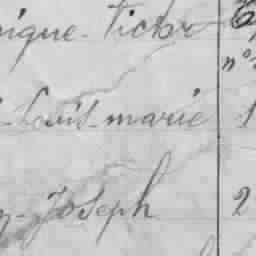 nique-Victor
n°
-Louis-marie 1
-Joseph 2